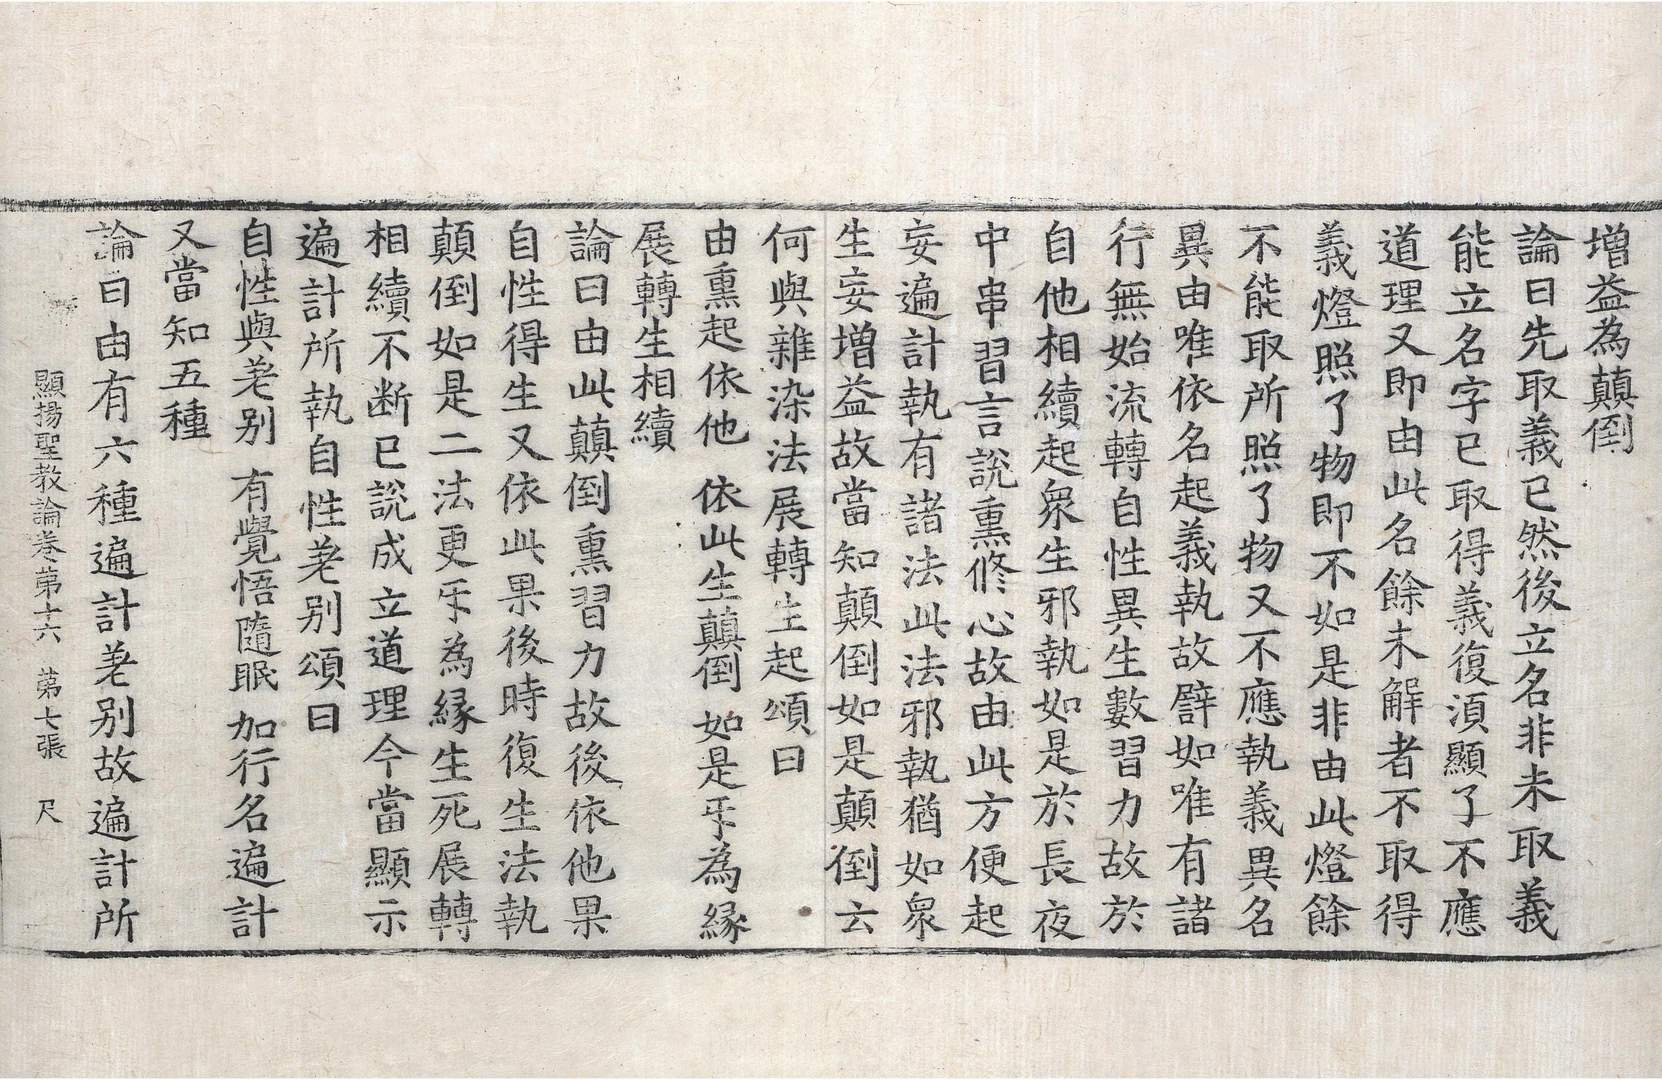 增益為顛倒
論曰先取義已然後立名非未取義
能立名字已取得義復湏顯了不應
道理又即由此名餘未解者不取得
義燈照了物即不如是非由此燈餘
不能取所照了物又不應執義異名
異由唯依名起義執故譬如唯有諸
行無始流轉自性異生數習力故於
自他相續起衆生邪執如是於長夜
中串習言說熏修心故由此方便起
妄遍計執有諸法此法邪執猶如衆
生妄增益故當知顛倒如是顛倒云
何與雜染法展轉生起頌曰
由熏起依他 依此生顛倒 如是乎為緣
展轉生相續
論曰由此顛倒熏習力故後依他果
自性得生又依此果後時復生法執
顛倒如是二法更乎為緣生死展轉
相續不断已說成立道理今當顯示
遍計所執自性差别頌曰
自性與差别 有覺悟隨眠 加行名遍計
又當知五種
論曰由有六種遍計差别故遍計所
顯揚聖教論卷第十六 第七張 尺